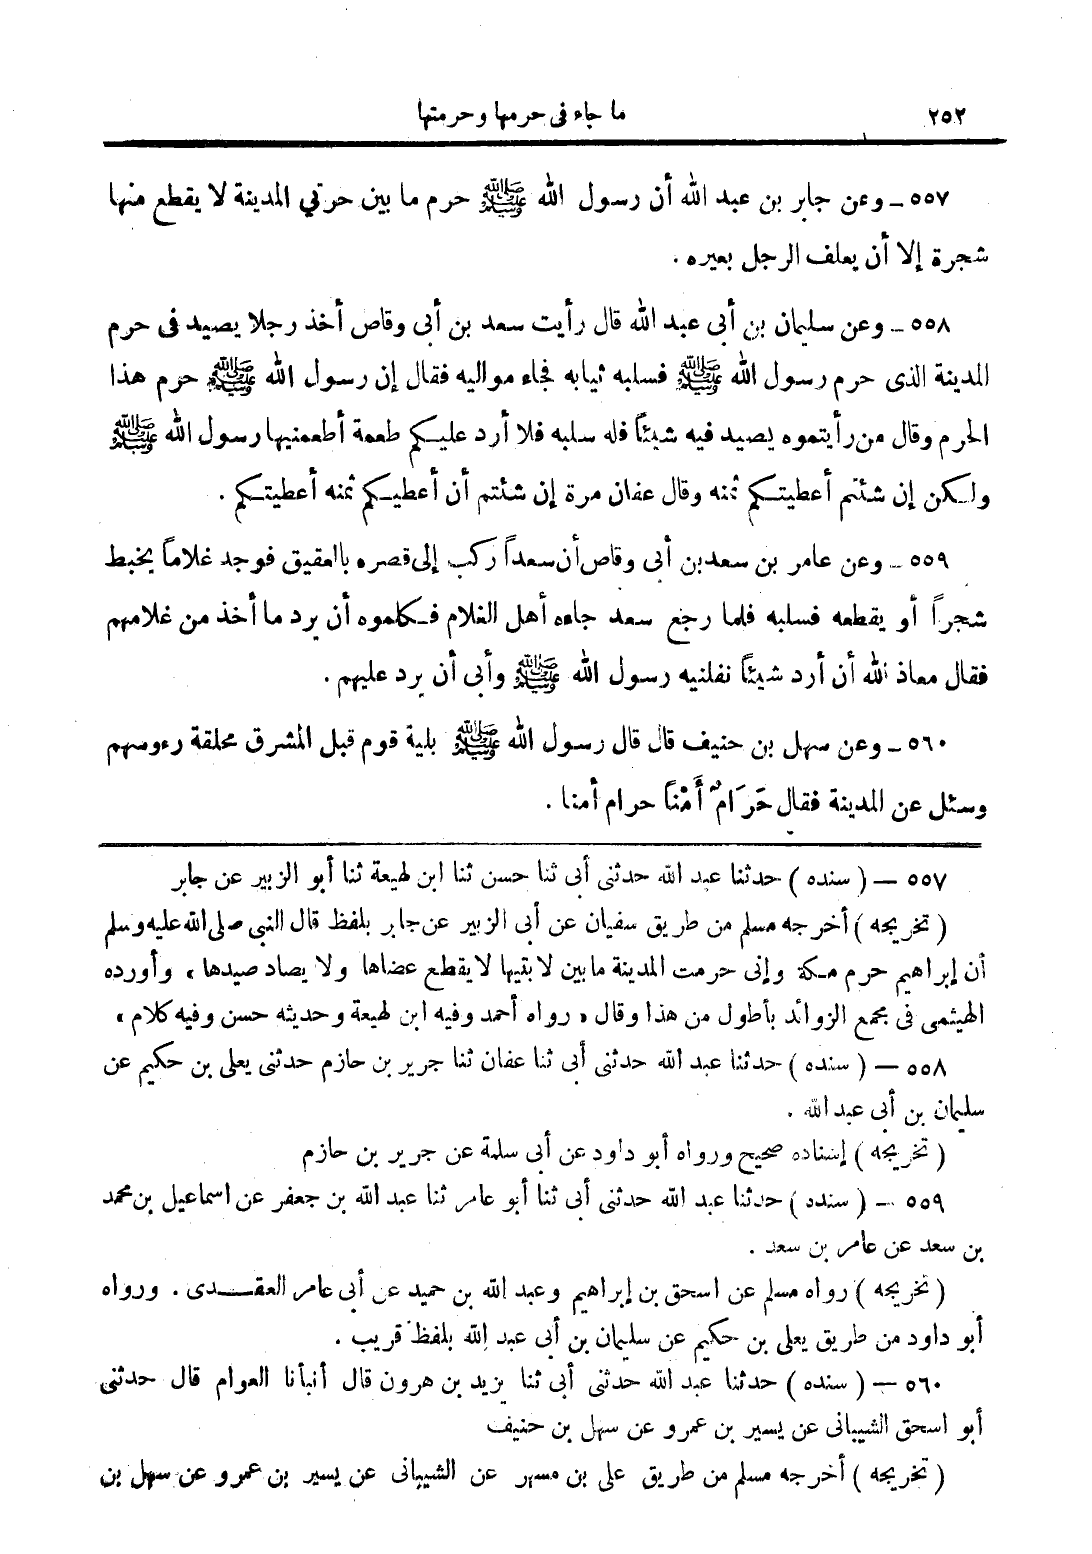 ٢٥٢ ما جاء فى حرمها وحرمتها
٥٥٧ ــ وعن جابر بن عبد الله أن رسول الله ﷺ حرم ما بين حرتي المدينة لا يقطع منها
شجرة إلا أن يعلف الرجل بعيره .
٥٥٨ ــ وعن سليمان بن أبى عبد الله قال رأيت سعد بن أبى وقاص أخذ رجلا يصيد فى حرم
المدينة الذى حرم رسول الله ﷺ فسلبه ثيابه فجاء مواليه فقال إن رسول الله ﷺ حرم هذا
الحرم وقال من رأيتموه يصيد فيه شيئاً فله سلبه فلا أرد عليكم طعمة أطعمنيها رسول الله ﷺ
ولكن إن شئتم أعطيتكم ثمنه وقال عفان مرة إن شئتم أن أعطيكم ثمنه أعطيتكم .
٥٥٩ ــ وعن عامر بن سعد بن أبى وقاص أن سعداً ركب إلى قصره باالعقيق فوجد غلاماً يخبط
شجراً أو يقطعه فسلبه فلما رجع سعد جاءه أهل الغلام فكلموه أن يرد ما أخذ من غلامهم
فقال معاذ الله أن أرد شيئاً نفلنيه رسول الله ﷺ وأبى أن يرد عليهم .
٥٦٠ ــ وعن سهل بن حنيف قال قال رسول الله ﷺ بلية قوم قبل المشرق محلقة رءوسهم
وسئل عن المدينة فقال حَرَامٌ أَمْناً حرام أمنا .
٥٥٧ — ( سنده ) حدثنا عبد الله حدثنى أبى ثنا حسن ثنا ابن لهيعة ثنا أبو الزبير عن جابر
( تخريجه ) أخرجه مسلم من طريق سفيان عن أبى الزبير عن جابر بلفظ قال النبى صلى الله عليه وسلم
أن إبراهيم حرم مكة وإنى حرمت المدينة ما بين لابقيها لا يقطع عضاها ولا يصاد صيدها ، وأورده
الهيثمى فى مجمع الزوائد بأطول من هذا وقال « رواه أحمد وفيه ابن لهيعة وحديثه حسن وفيه كلام »
٥٥٨ — ( سنده ) حدثنا عبد الله حدثنى أبى ثنا عفان ثنا جرير بن حازم حدثنى يعلى بن حكيم عن
سليمان بن أبى عبد الله .
( تخريجه ) إسناده صحيح ورواه أبو داود عن أبى سلمة عن جرير بن حازم
٥٥٩ — ( سنده ) حدثنا عبد الله حدثنى أبى ثنا أبو عامر ثنا عبد الله بن جعفر عن اسماعيل بن محمد
بن سعد عن عامر بن سعد .
( تخريجه ) رواه مسلم عن اسحق بن إبراهيم وعبد الله بن حميد عن أبى عامر العقدى . ورواه
أبو داود من طريق يعلى بن حكيم عن سليمان بن أبى عبد الله بلفظ قريب .
٥٦٠ — ( سنده ) حدثنا عبد الله حدثنى أبى ثنا يزيد بن هرون قال أنبأنا العوام قال حدثنى
أبو اسحق الشيبانى عن يسير بن عمرو عن سهل بن حنيف
( تخريجه ) أخرجه مسلم من طريق على بن مسهر عن الشيبانى عن يسير بن عمرو عن سهل بن